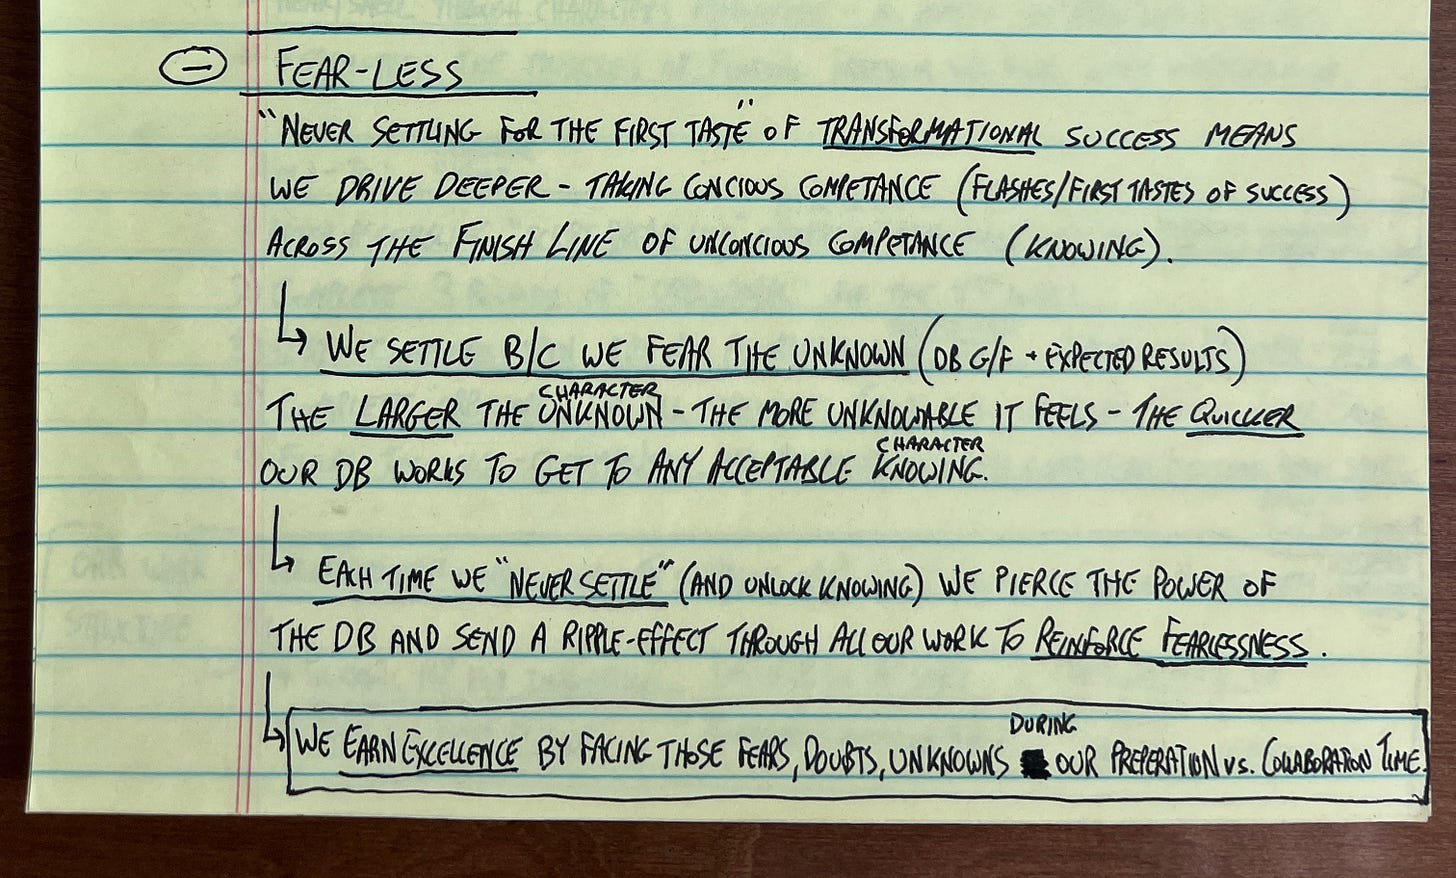 FEAR-LESS
"NEVER SETTLING FOR THE FIRST TASTE" OF TRANSFORMATIONAL SUCCESS MEANS
WE DRIVE DEEPER - TAKING CONCIOUS COMPETANCE (FLASHES/FIRST TASTES OF SUCCESS)
ACROSS THE FINISH LINE OF UNCONCIOUS COMPETANCE (KNOWING).
↳ WE SETTLE B/C WE FEAR THE UNKNOWN (DB G/F + EXPECTED RESULTS)
CHARACTER
THE LARGER THE UNKNOWN - THE MORE UNKNOWABLE IT FEELS - THE QUICKER
CHARACTER
OUR DB WORKS TO GET TO ANY ACCEPTABLE KNOWING.
↳ EACH TIME WE "NEVER SETTLE" (AND UNLOCK KNOWING) WE PIERCE THE POWER OF
THE DB AND SEND A RIPPLE-EFFECT THROUGH ALL OUR WORK TO REINFORCE FEARLESSNESS.
DURING
↳ WE EARN EXCELLENCE BY FACING THOSE FEARS, DOUBTS, UNKNOWNS OUR PREPERATION vs. COLLABORATION TIME.